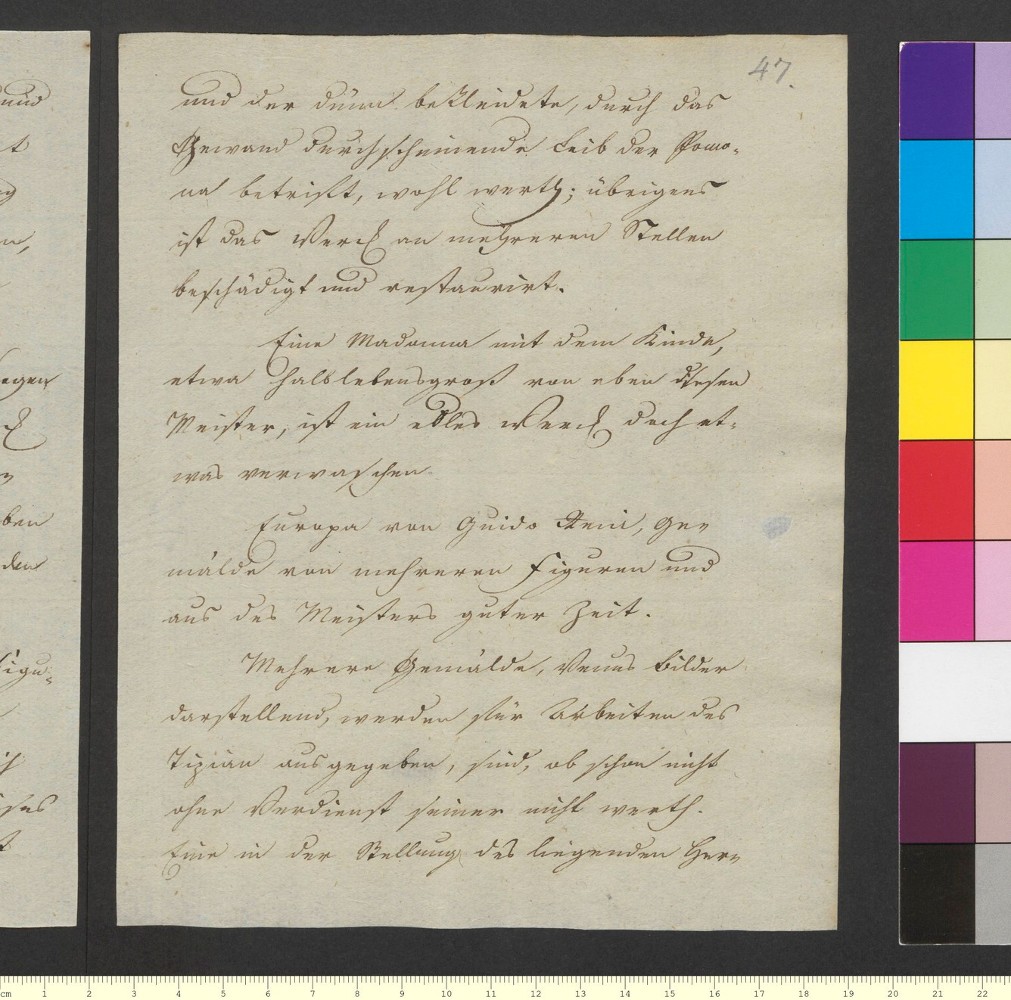 47.
und der dünn bekleidete, durch das
Gewand durchscheinende Leib der Pomo-
na betrifft, wohl werth; übrigens
ist das Werck an mehreren Stellen
beschädigt und restaurirt.
Eine Madonna mit dem Kinde,
etwa halblebensgroß von eben diesen
Meister, ist ein edles Werck doch et-
was verwaschen
Europa von Guido Reni, Ge-
mälde von mehreren Figuren und
aus des Meisters guter Zeit.
Mehrere Gemälde, Venus bilder
darstellend, werden für Arbeiten des
Tizian ausgegeben, sind, ob schon nicht
ohne Verdienst seiner nicht werth.
Eine in der Stellung des liegenden Her-
und
t
n,
egen
ben
den
Figu-
cm 1 2 3 4 5 6 7 8 9 10 11 12 13 14 15 16 17 18 19 20 21 22